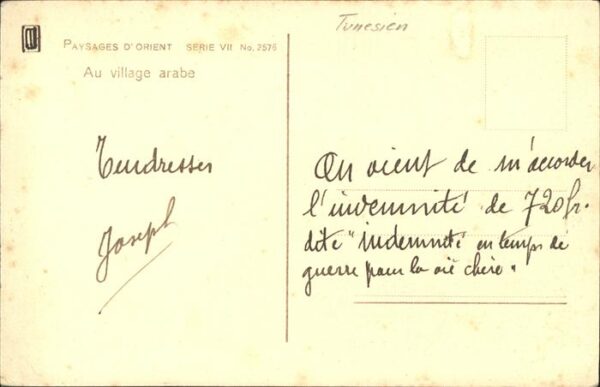 PAYSAGES D'ORIENT SERIE VII No. 2576
Au village arabe
Tunesien
Tendresses
Joseph
On vient de m'accorder
l'indemnité de 720 fr.
dite "indemnité en temps de
guerre pour la vie chère"